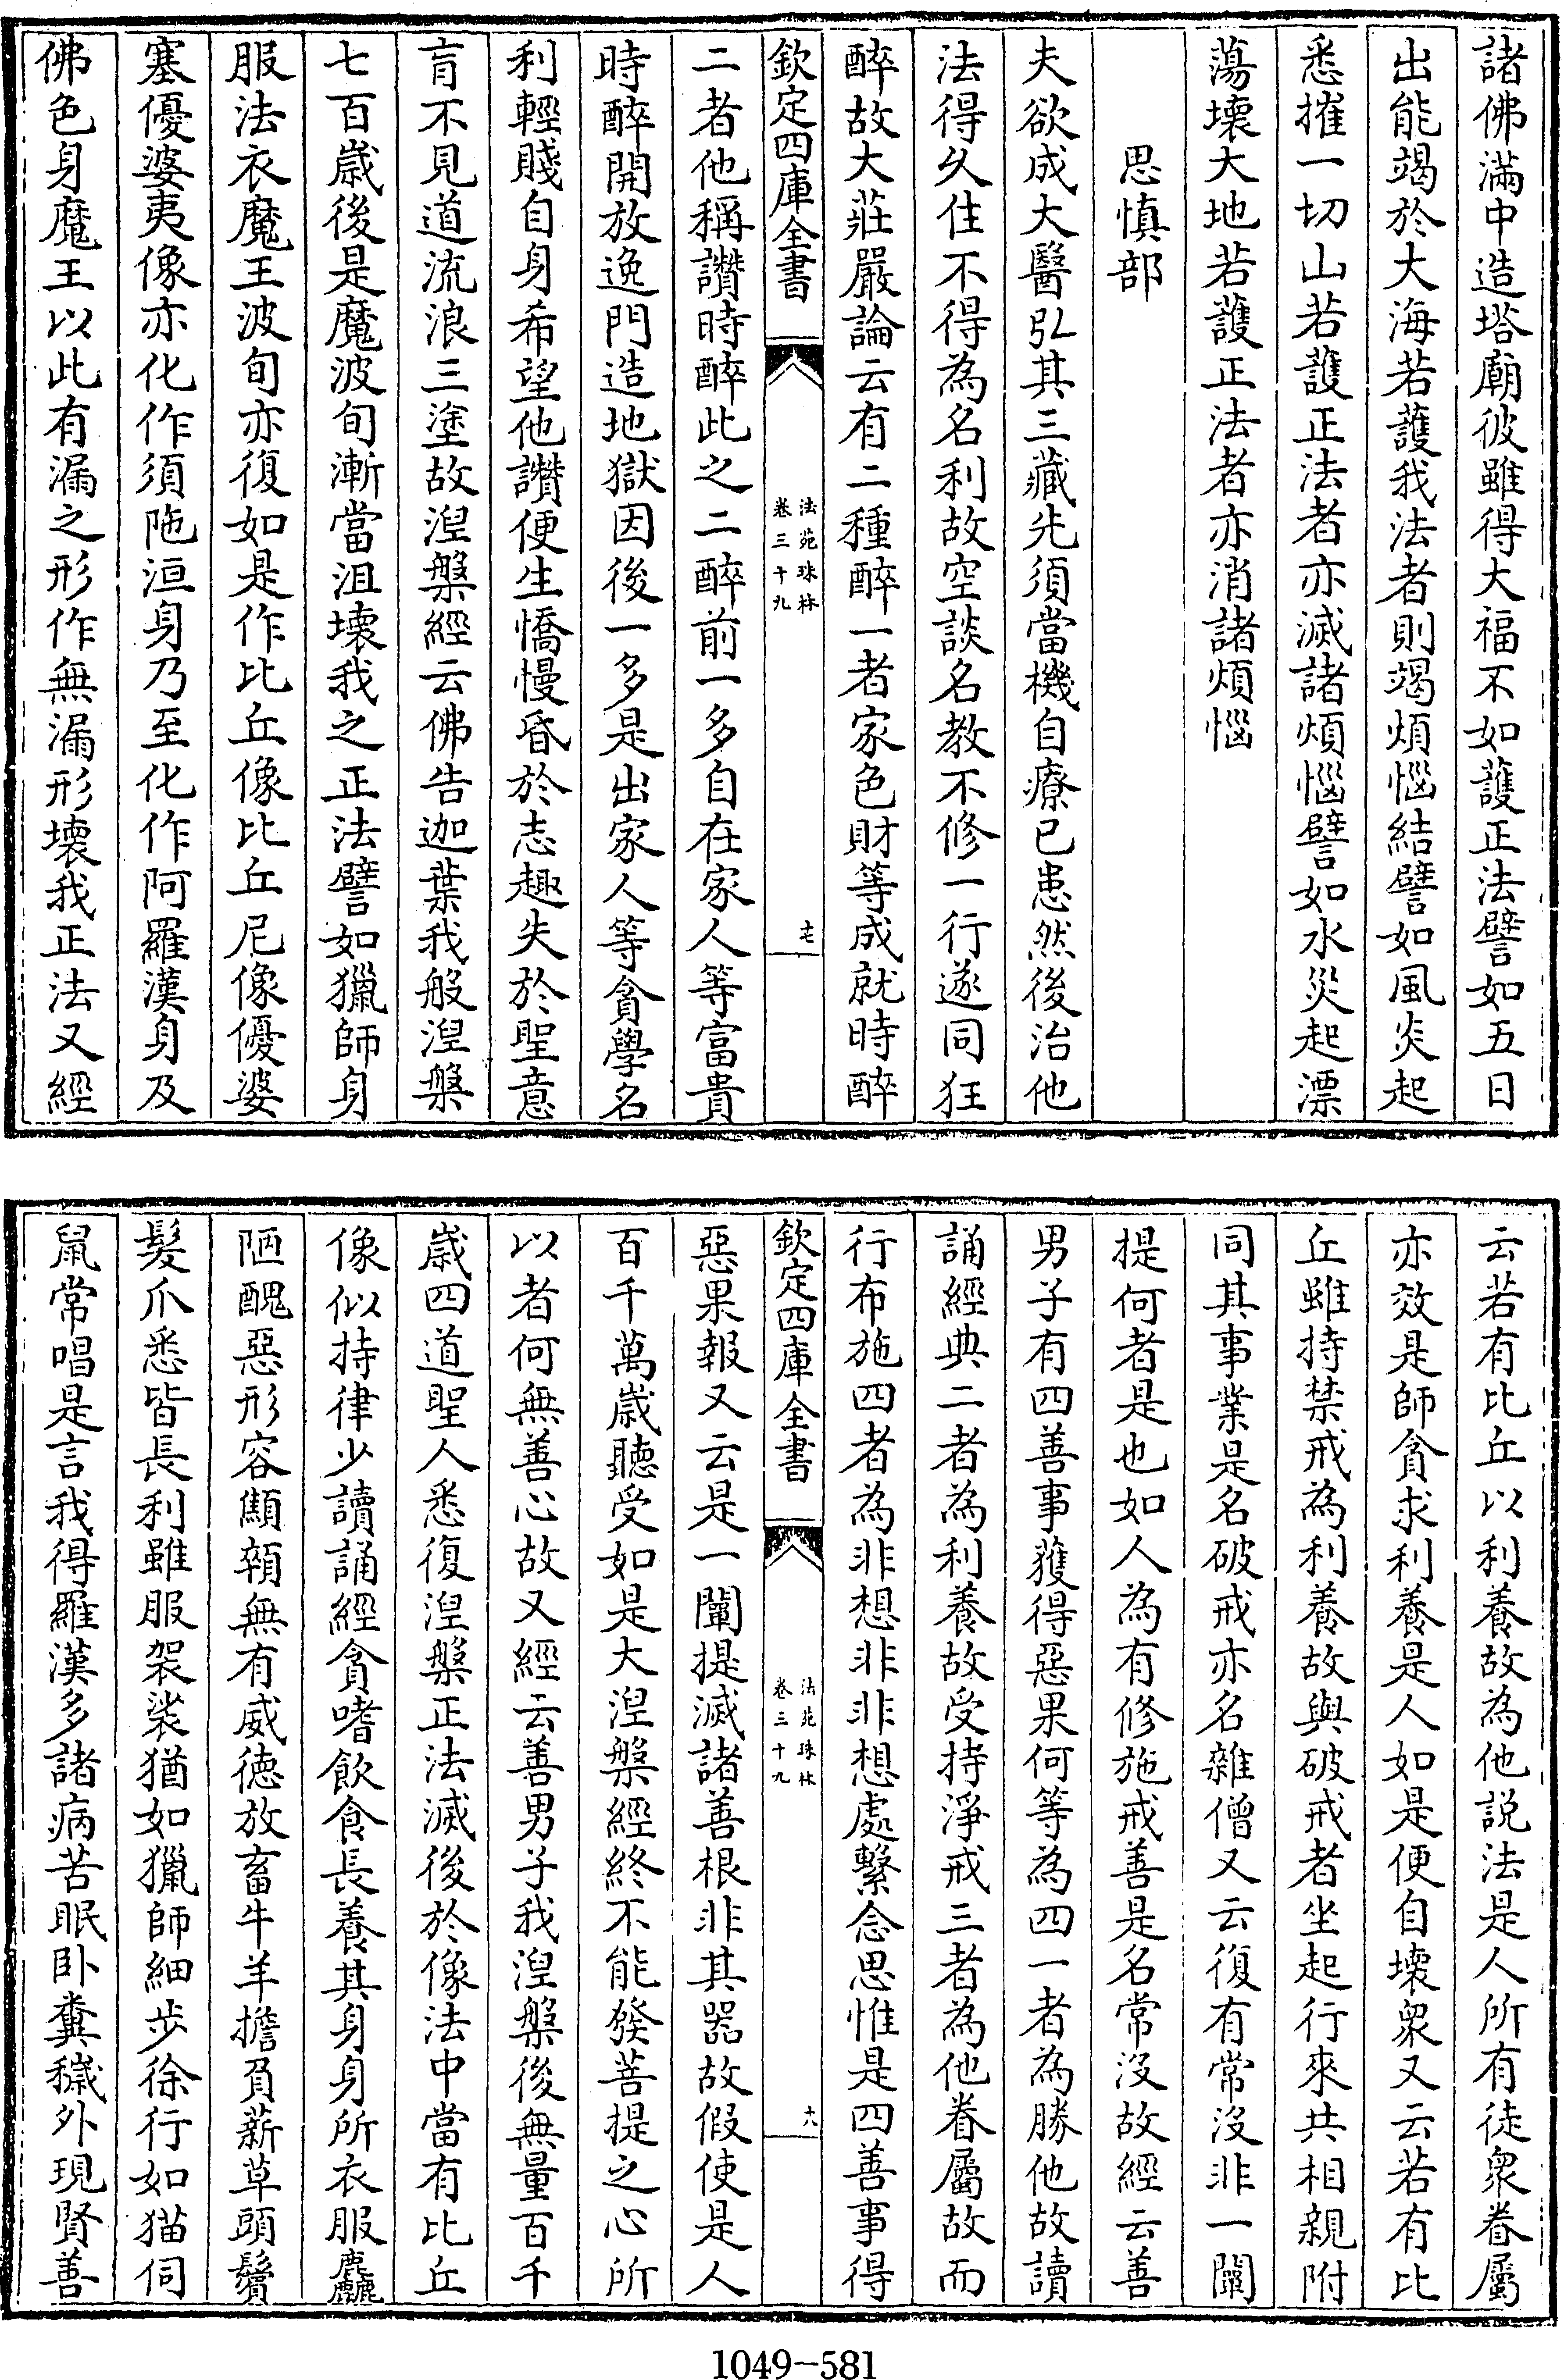 諸佛滿中造塔廟彼雖得大福不如護正法譬如五日
出能竭於大海若護我法者則竭煩惱結譬如風災起
悉摧一切山若護正法者亦滅諸煩惱譬如水災起漂
蕩壞大地若護正法者亦消諸煩惱
思慎部
夫欲成大醫弘其三藏先須當機自療已患然後治他
法得久住不得為名利故空談名教不修一行遂同狂
醉故大莊嚴論云有二種醉一者家色財等成就時醉
欽定四庫全書
法苑珠林
卷三十九
十七
二者他稱讚時醉此之二醉前一多自在家人等富貴
時醉開放逸門造地獄因後一多是出家人等貪學名
利輕賤自身希望他讚便生憍慢昏於志趣失於聖意
盲不見道流浪三塗故涅槃經云佛告迦葉我般涅槃
七百歲後是魔波旬漸當沮壞我之正法譬如獵師身
服法衣魔王波旬亦復如是作比丘像比丘尼像優婆
塞優婆夷像亦化作須陁洹身乃至化作阿羅漢身及
佛色身魔王以此有漏之形作無漏形壞我正法又經
云若有比丘以利養故為他說法是人所有徒衆眷屬
亦效是師貪求利養是人如是便自壞衆又云若有比
丘雖持禁戒為利養故與破戒者坐起行來共相親附
同其事業是名破戒亦名雜僧又云復有常沒非一闡
提何者是也如人為有修施戒善是名常沒故經云善
男子有四善事獲得惡果何等為四一者為勝他故讀
誦經典二者為利養故受持淨戒三者為他眷屬故而
行布施四者為非想非非想處繫念思惟是四善事得
欽定四庫全書
法苑珠林
卷三十九
十八
惡果報又云是一闡提滅諸善根非其器故假使是人
百千萬歲聽受如是大涅槃經終不能發菩提之心所
以者何無善心故又經云善男子我涅槃後無量百千
歲四道聖人悉復涅槃正法滅後於像法中當有比丘
像似持律少讀誦經貪嗜飲食長養其身身所衣服麤
陋醜惡形容顦顇無有威德放畜牛羊擔負薪草頭鬚
髮爪悉皆長利雖服袈裟猶如獵師細步徐行如猫伺
鼠常唱是言我得羅漢多諸病苦眠卧糞穢外現賢善
1049-581